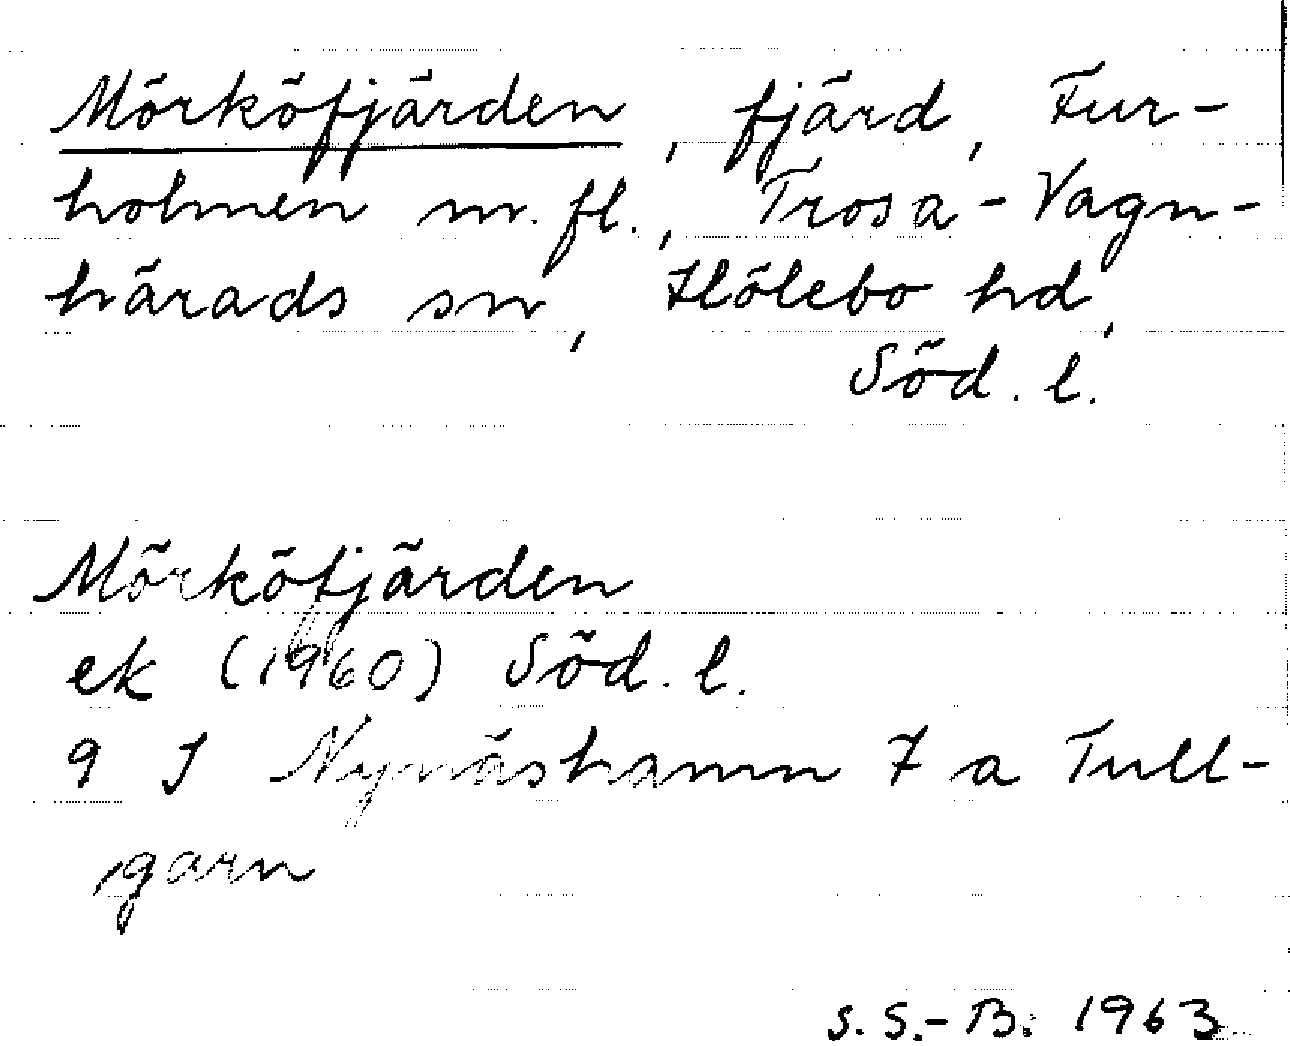 Mörköfjärden, fjärd, Fur-
holmen m.fl., Trosa-Vagn-
härads sn, Hölebo hd,
Söd. l.
Mörköfjärden
ek (1960) Söd. l.
9 I Nynäshamn 7 a Tull-
garn
S. S.-B. 1963